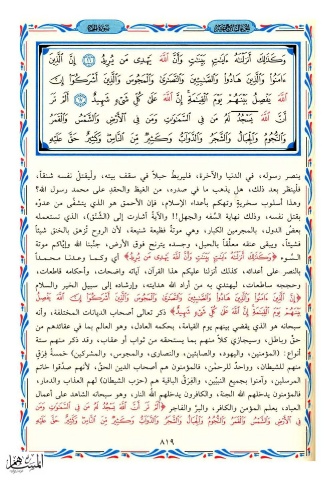 وَكَذَٰلِكَ أَنزَلْنَٰهُ ءَايَٰتٍۭ بَيِّنَٰتٍ وَأَنَّ ٱللَّهَ يَهْدِى مَن يُرِيدُ ﴿١٦﴾ إِنَّ ٱلَّذِينَ
ءَامَنُوا۟ وَٱلَّذِينَ هَادُوا۟ وَٱلصَّٰبِـِٔينَ وَٱلنَّصَٰرَىٰ وَٱلْمَجُوسَ وَٱلَّذِينَ أَشْرَكُوٓا۟ إِنَّ
ٱللَّهَ يَفْصِلُ بَيْنَهُمْ يَوْمَ ٱلْقِيَٰمَةِ إِنَّ ٱللَّهَ عَلَىٰ كُلِّ شَىْءٍ شَهِيدٌ ﴿١٧﴾ أَلَمْ تَرَ
أَنَّ ٱللَّهَ يَسْجُدُ لَهُۥ مَن فِى ٱلسَّمَٰوَٰتِ وَمَن فِى ٱلْأَرْضِ وَٱلشَّمْسُ وَٱلْقَمَرُ
وَٱلنُّجُومُ وَٱلْجِبَالُ وَٱلشَّجَرُ وَٱلدَّوَآبُّ وَكَثِيرٌ مِّنَ ٱلنَّاسِ وَكَثِيرٌ حَقَّ عَلَيْهِ
ينصر رسوله، في الدنيا والآخرة، فليربط حبلاً في سقف بيته، وليقتلْ نفسه شنقاً،
فلْينظر بعد ذلك، هل يذهب ما في صدره، من الغيظ والحقدِ على محمد رسول الله؟
وهذا أسلوب سخريةٍ وتهكم بأعداء الإسلام، فإن الأحمق هو الذي يتشفّى من عدوّه
بقتل نفسه، وذلك نهاية السَّفه والجهل!! والآيةُ أشارت إلى (الشَّنْق)، الذي تستعمله
بعضُ الدول، بالمجرمين الكبار، وهي موتةٌ فظيعة شنيعة، لأن الروح تُزهق بالخنق شيئاً
فشيئاً، ويبقى عنقه معلّقاً بالحبل، وجسده يترنح فوق الأرض، جنّبنا الله وإيّاكم موتة
السُّوء ﴿وَكَذَٰلِكَ أَنزَلْنَٰهُ ءَايَٰتٍۭ بَيِّنَٰتٍ وَأَنَّ ٱللَّهَ يَهْدِى مَن يُرِيدُ﴾ أي وكما وعدنا محمداً
بالنصر على أعدائه، كذلك أنزلنا عليكم هذا القرآن، آياته واضحات، وأحكامه قاطعات،
وحججه ساطعات، ليهتدي به من أراد الله هدايته، وإرشاده إلى سبيل الخير والسلام
﴿إِنَّ ٱلَّذِينَ ءَامَنُوا۟ وَٱلَّذِينَ هَادُوا۟ وَٱلصَّٰبِـِٔينَ وَٱلنَّصَٰرَىٰ وَٱلْمَجُوسَ وَٱلَّذِينَ أَشْرَكُوٓا۟ إِنَّ ٱللَّهَ يَفْصِلُ
بَيْنَهُمْ يَوْمَ ٱلْقِيَٰمَةِ إِنَّ ٱللَّهَ عَلَىٰ كُلِّ شَىْءٍ شَهِيدٌ﴾ ذكر تعالى أصحاب الديانات المختلفة، وأنه
سبحانه هو الذي يقضي بينهم يوم القيامة، بحكمه العادل، وهو العالم بما في عقائدهم من
حقٍّ وباطل، وسيجازي كلاً منهم بما يستحقه من ثواب أو عقاب، وقد ذكر منهم ستة
أنواع: (المؤمنين، واليهود، والصابئين، والنصارى، والمجوس، والمشركين) خمسة فِرَقٍ
منهم للشيطان، وواحدٌ للرحمن، فالمؤمنون هم أصحاب الدين الحقّ، لأنهم صدّقوا خاتم
المرسلين، وآمنوا بجميع النبيّين، والفِرَقُ الباقية هم (حزب الشيطان) لهم العذاب والدمار،
فالمؤمنون يدخلهم الله الجنة، والكافرون يدخلهم الله النار، وهو سبحانه الشاهد على أعمال
العباد، يعلم المؤمن والكافر، والبرَّ والفاجر ﴿أَلَمْ تَرَ أَنَّ ٱللَّهَ يَسْجُدُ لَهُۥ مَن فِى ٱلسَّمَٰوَٰتِ وَمَن
فِى ٱلْأَرْضِ وَٱلشَّمْسُ وَٱلْقَمَرُ وَٱلنُّجُومُ وَٱلْجِبَالُ وَٱلشَّجَرُ وَٱلدَّوَآبُّ وَكَثِيرٌ مِّنَ ٱلنَّاسِ وَكَثِيرٌ حَقَّ عَلَيْهِ
٨١٩